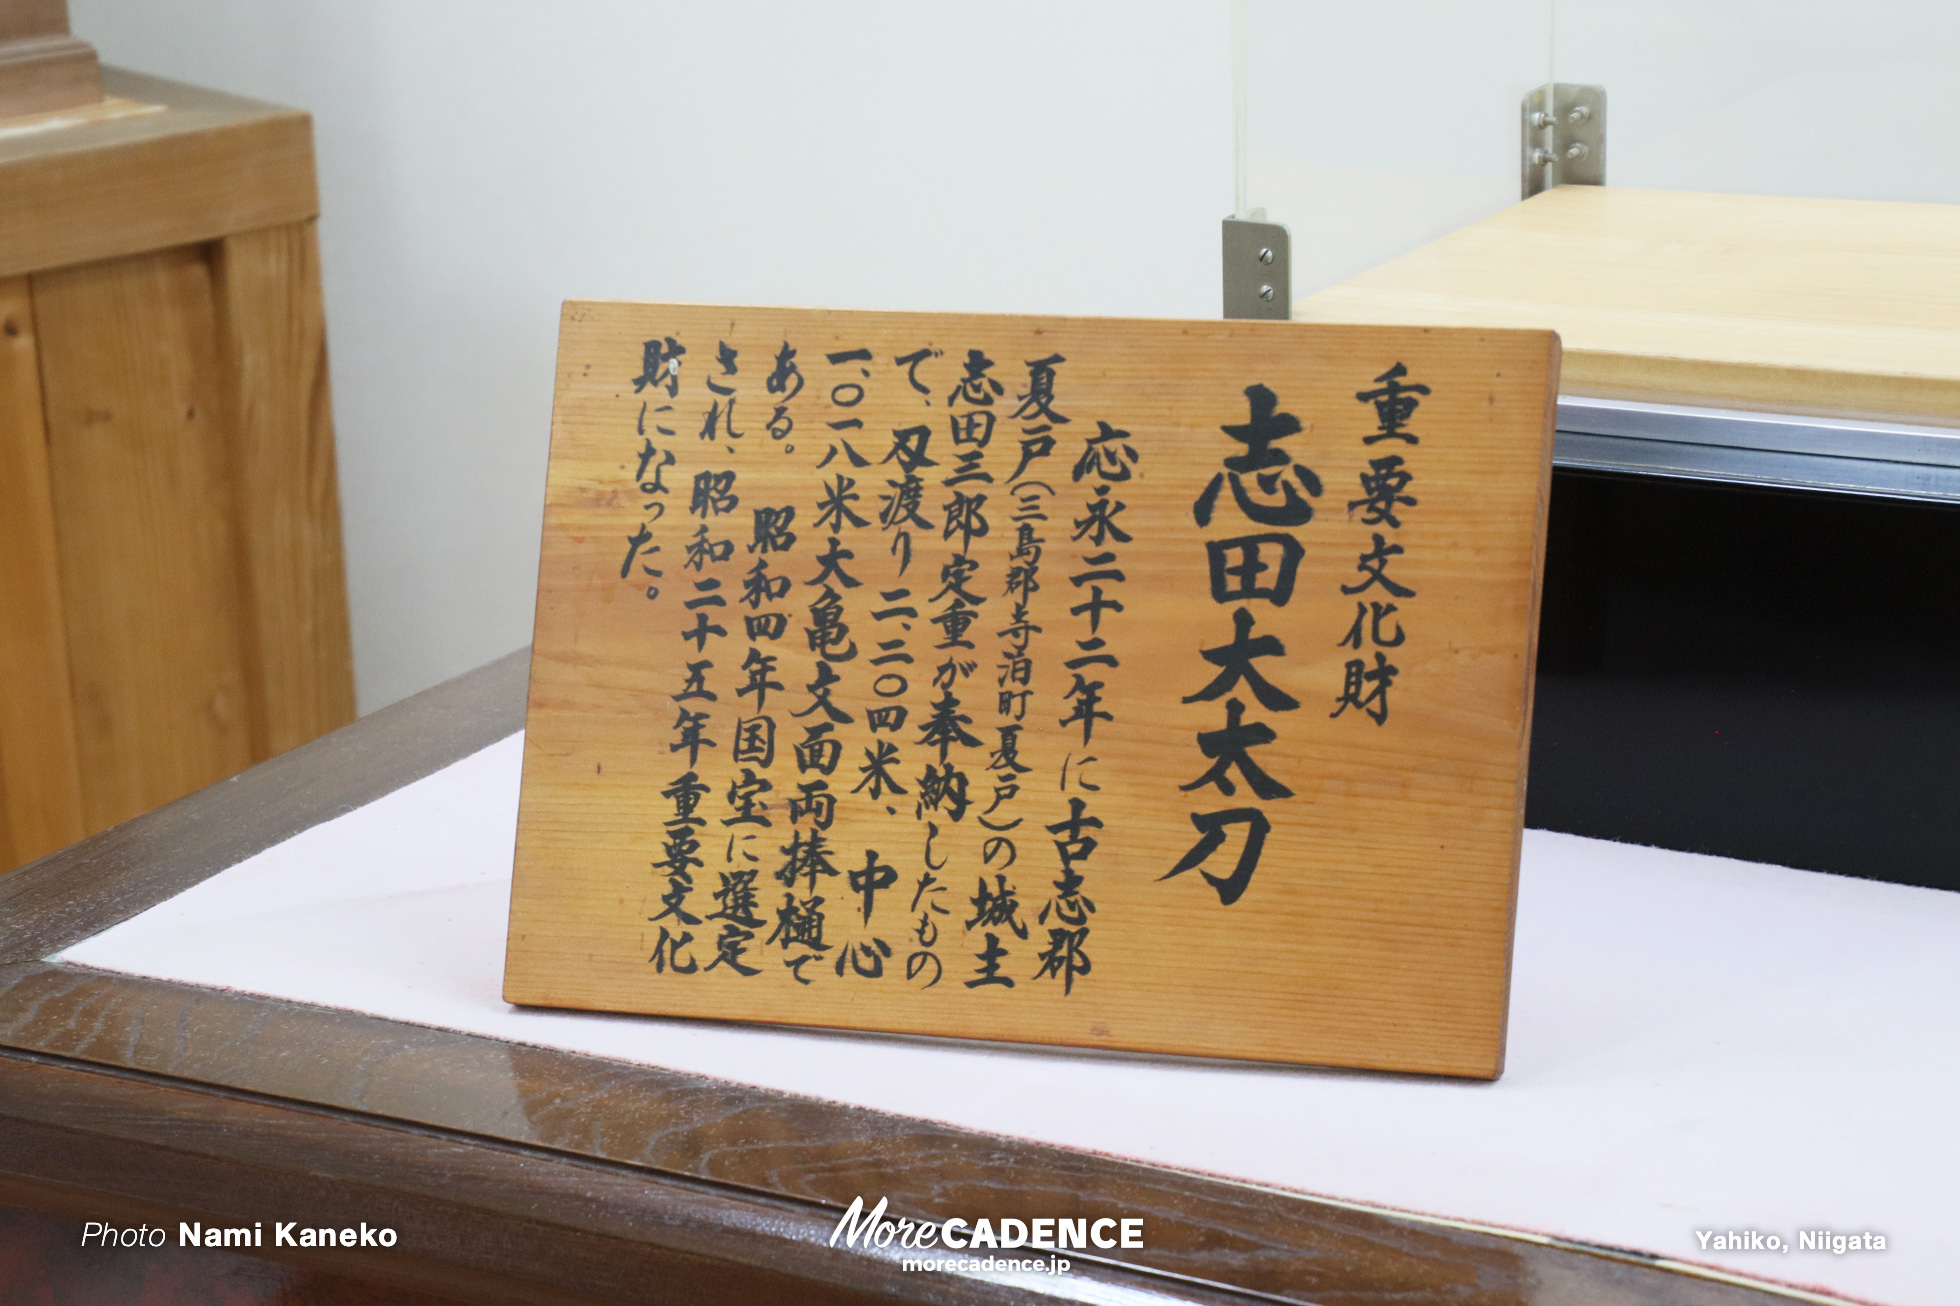 重要文化財
志田大太刀
応永二十二年に古志郡
夏戸(三島郡寺泊町夏戸)の城主
志田三郎定重が奉納したもの
で、刃渡り二、二〇四米、中心
一、〇一八米大亀文面両捧樋で
ある。昭和四年国宝に選定
され、昭和二十五年重要文化
財になった。
Photo Nami Kaneko
More CADENCE
morecadence.jp
Yahiko, Niigata